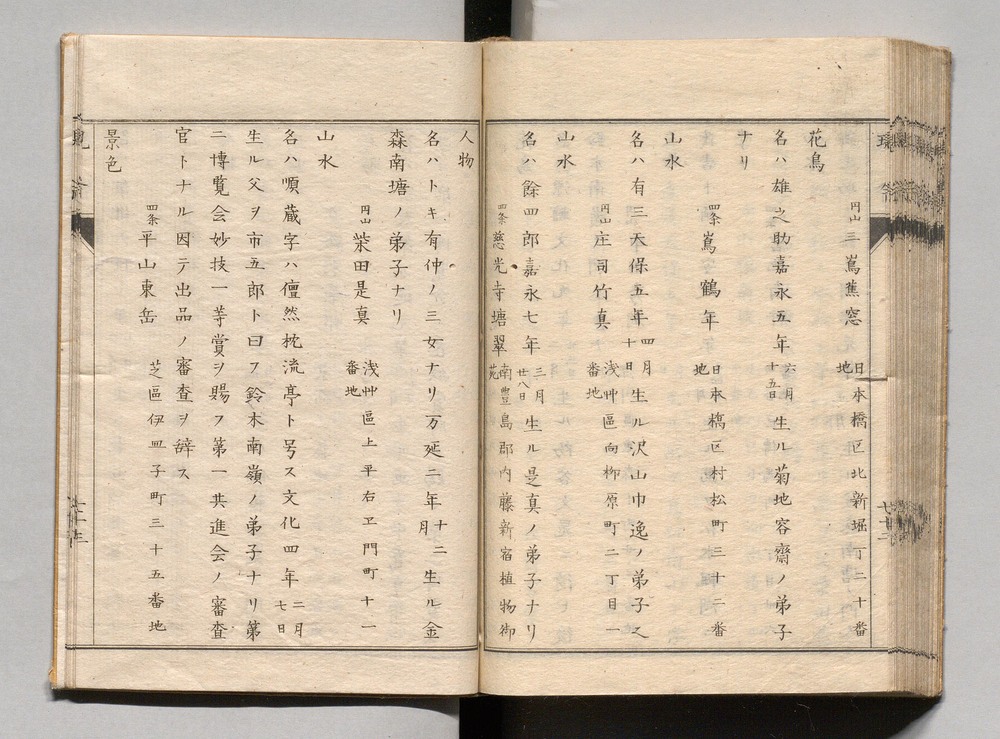 花鳥
円山 三嶌蕉窓 日本橋区北新堀丁二十番地
名ハ雄之助嘉永五年六月十五日生ル菊地容齋ノ弟子
ナリ
四条 嶌鶴年 日本橋区村松町三十二番地
山水
名ハ有三天保五年四月十日生ル沢山巾逸ノ弟子之
円山 庄司竹真 浅艸區向栁原町二丁目一番地
山水
名ハ餘四郎嘉永七年三月廿八日生ル是真ノ弟子ナリ
四条 慈光寺塘翠 南豊島郡内藤新宿植物御苑
人物
名ハトキ有仲ノ三女ナリ万延二年十二月生ル金
森南塘ノ弟子ナリ
円山 柴田是真 浅艸區上平右ヱ門町十一番地
山水
名ハ順蔵字ハ儃然枕流亭ト号ス文化四年二月七日
生ル父ヲ市五郎ト曰フ鈴木南嶺ノ弟子ナリ第
二博覧会妙技一等賞ヲ賜フ第一共進会ノ審査
官トナル因テ出品ノ審査ヲ辞ス
四条 平山東岳 芝區伊皿子町三十五番地
景色